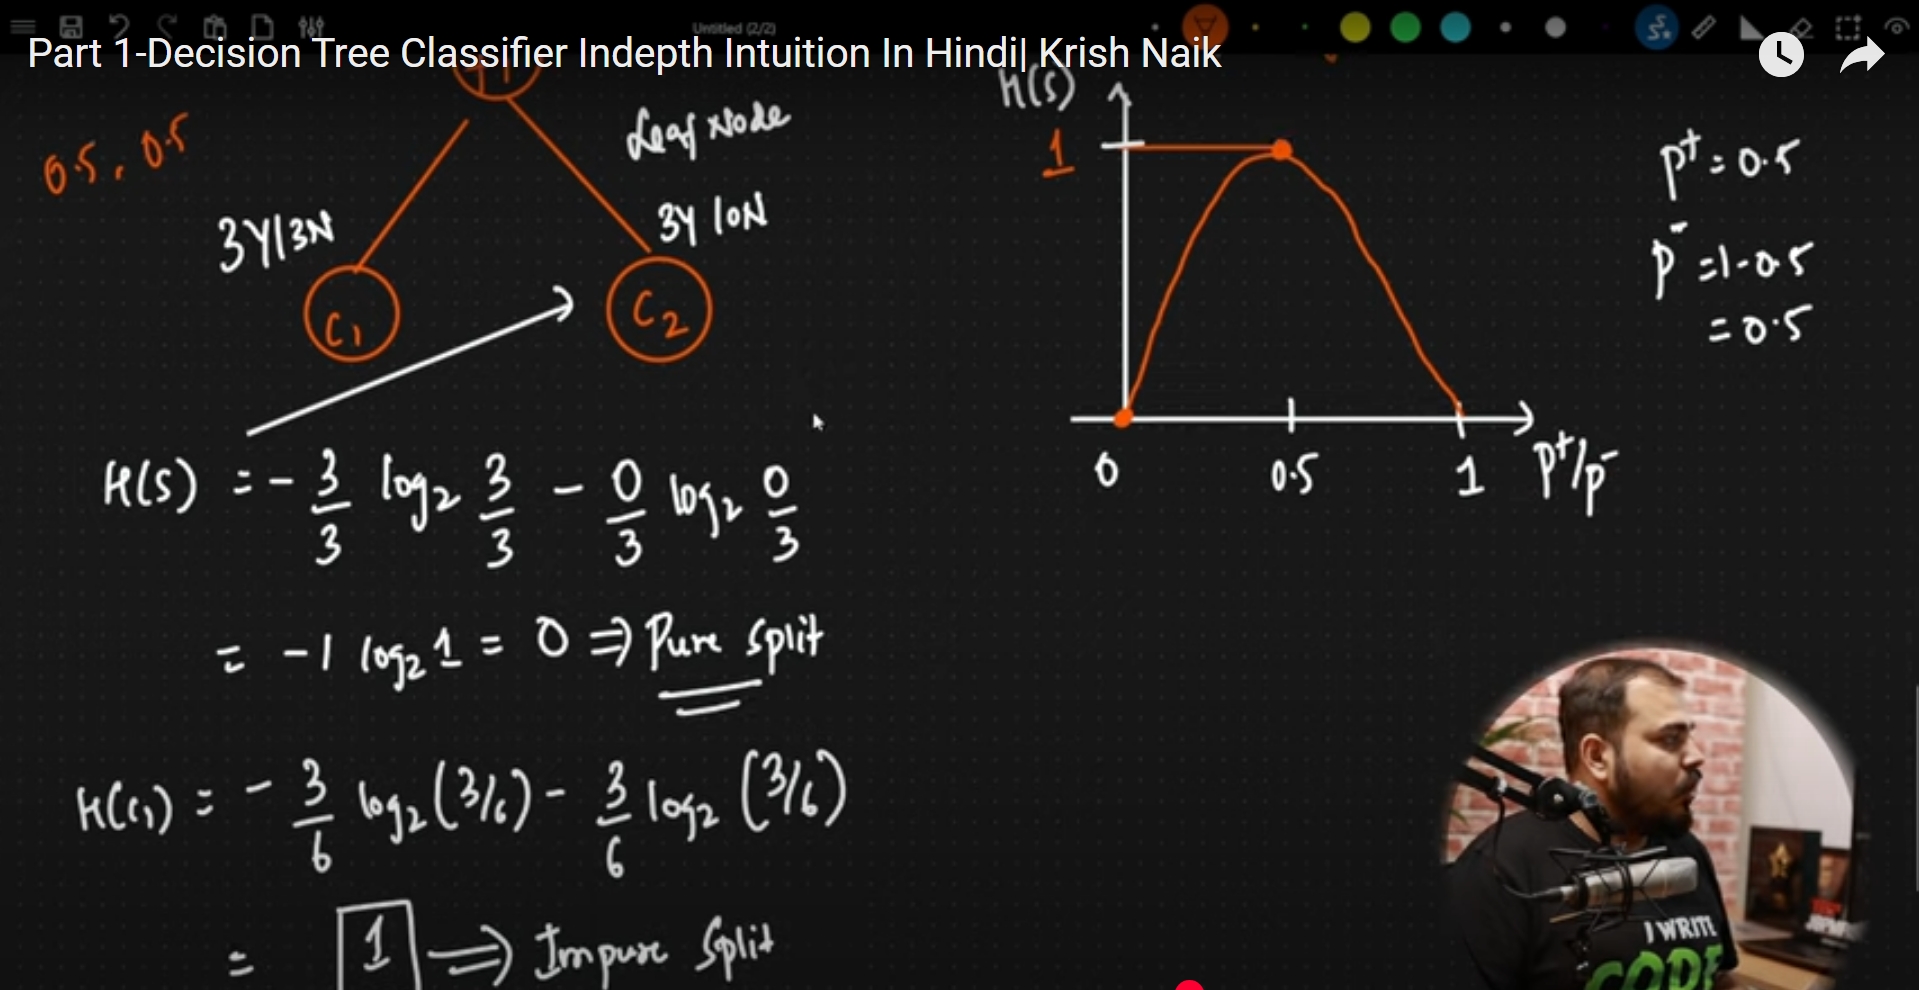 Untitled (2/2)
Part 1-Decision Tree Classifier Indepth Intuition In Hindi| Krish Naik
0.5, 0.5
Leaf Node
3Y|3N
3Y|0N
C1
C2
H(S) = - 3/3 log2 3/3 - 0/3 log2 0/3
= -1 log2 1 = 0 ⇒ Pure Split
H(C1) = - 3/6 log2 (3/6) - 3/6 log2 (3/6)
= 1 ⇒ Impure Split
H(S)
1
0
0.5
1
P+/P-
P+ = 0.5
P- = 1-0.5
= 0.5
I WRITE
CODE